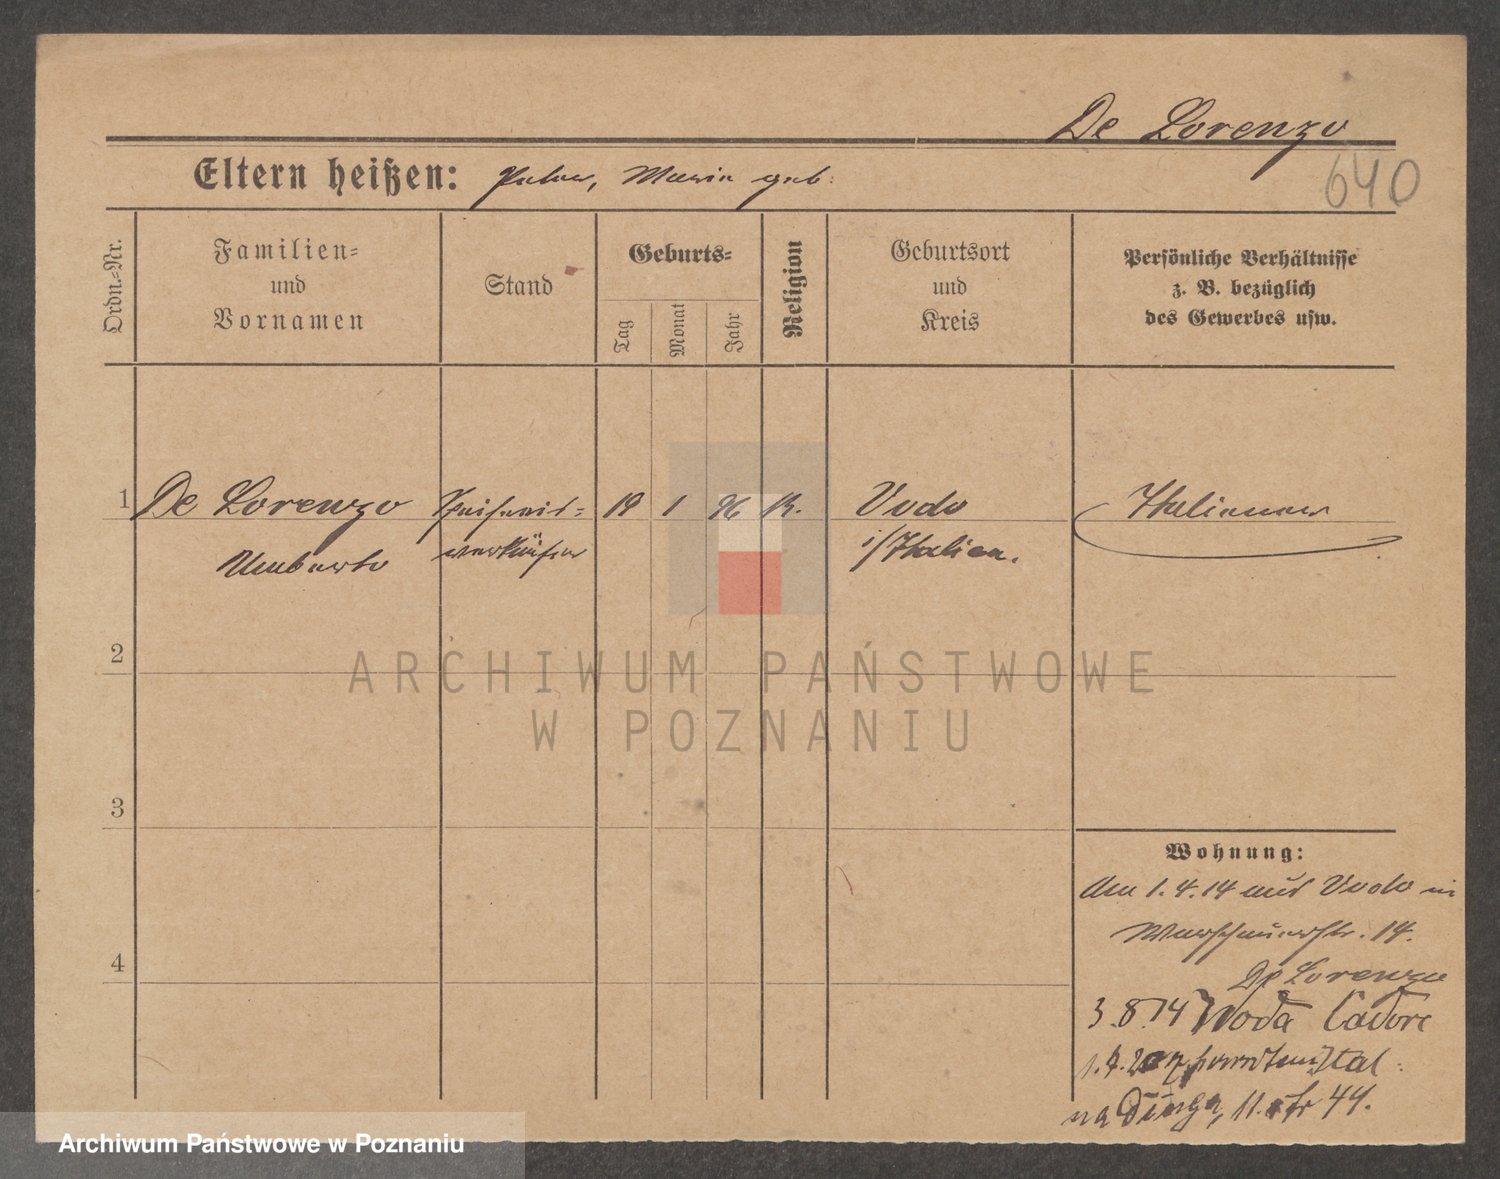 De Lorenzo
Eltern heißen: Peter, Maria geb.
640
Ordn.-Nr.
Familien-
und
Vornamen
Stand
Geburts-
Tag
Monat
Jahr
Religion
Geburtsort
und
Kreis
Persönliche Verhältnisse
z. B. bezüglich
des Gewerbes usw.
1 De Lorenzo Speiseeis- 19 1 96 k. Vodo Italiener
Umberto verkäufer i/Italien.
2
3
4
Wohnung:
Am 1.4.14 aus Vodo in
14.
De Lorenzo
3.8.14 Voda Cadore
1.4.20 z powrotem Ital.
na 11. 44.
ARCHIWUM PAŃSTWOWE
W POZNANIU
Archiwum Państwowe w Poznaniu